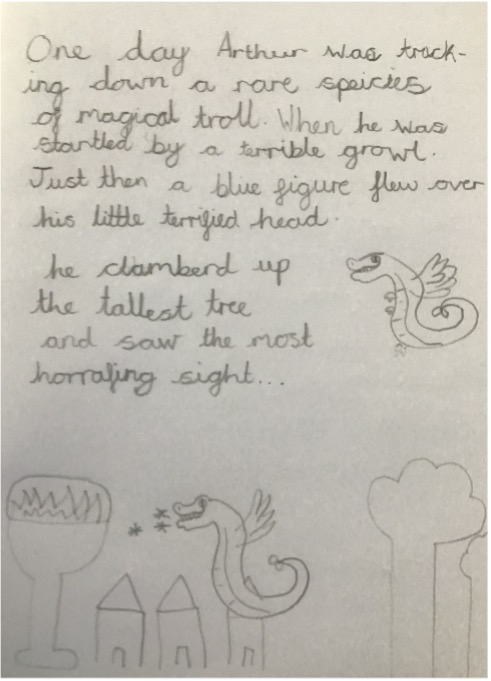 One day Arthur was track-
ing down a rare speicies
of magical troll. When he was
startled by a terrible growl.
Just then a blue figure flew over
his little terrified head.
he clamberd up
the tallest tree
and saw the most
horrafing sight...